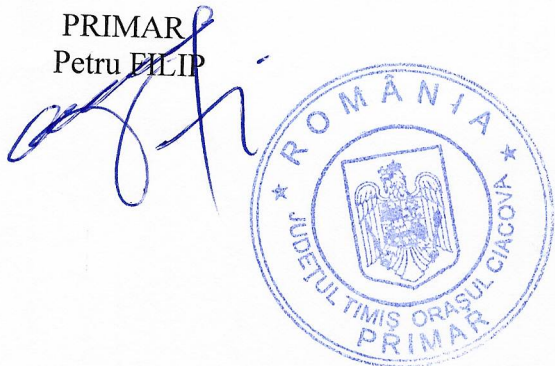 PRIMAR
Petru FILIP
ROMÂNIA
JUDEŢUL TIMIŞ ORAŞUL CIACOVA
PRIMAR